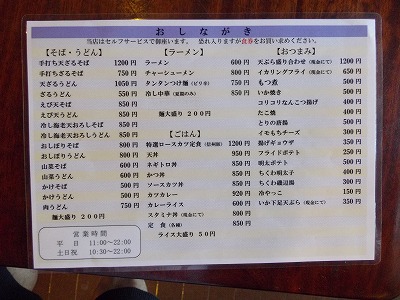 おしながき
当店はセルフサービスで御座います。 恐れ入りますが食券をお買い求めください。
【そば・うどん】
手打ち天ざるそば 1200円
手打ちざるそば 750円
天ざるうどん 1050円
ざるうどん 550円
えび天そば 850円
えび天うどん 850円
冷し海老天おろしそば
冷し海老天おろしうどん
おしぼりそば 800円
おしぼりうどん
山菜そば
山菜うどん
かけそば
かけうどん
肉うどん
麺大盛り 200円
【ラーメン】
ラーメン 600円
チャーシューメン 850円
タンタンつけ麺(ピリ辛) 750円
冷し中華(夏期のみ) 850円
麺大盛り 200円
【ごはん】
特選ロースカツ定食 1200円
天丼 950円
ネギトロ丼 950円
かつ丼 850円
ソースカツ丼 850円
カツカレー 920円
カレーライス 600円
スタミナ丼(現金にて) 800円
定食(各種) 850円
ライス大盛り 50円
【おつまみ】
天ぷら盛り合わせ(現金にて) 1200円
イカリングフライ(現金にて) 650円
もつ煮 500円
いか焼き 500円
コリコリなんこつ揚げ 400円
たこ焼 400円
とりの唐揚 500円
イモもちチーズ 300円
揚げギョウザ 350円
フライドポテト 250円
明太ポテト 350円
ちくわ明太子 400円
ちくわ磯辺揚 300円
冷やっこ 150円
いか下足天ぷら(現金にて) 350円
営業時間
平日 11:00～22:00
土日祝 10:30～22:00